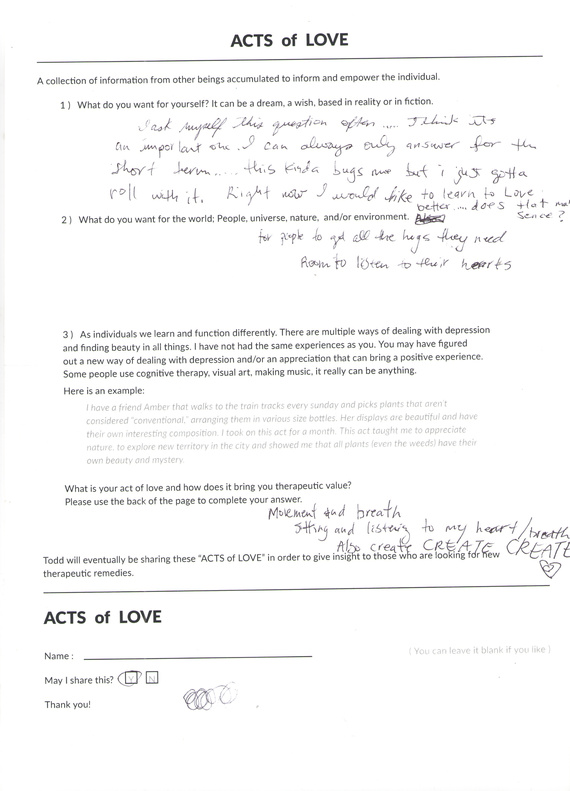 ACTS of LOVE
A collection of information from other beings accumulated to inform and empower the individual.
1 ) What do you want for yourself? It can be a dream, a wish, based in reality or in fiction.
I ask myself this question often .... I think its
an important one. I can always only answer for the
short term .... this kinda bugs me but i just gotta
roll with it. Right now I would like to learn to Love
better ... does that ma
sence ?
2) What do you want for the world; People, universe, nature, and/or environment.
for people to get all the hugs they need
to listen to their hearts
3 ) As individuals we learn and function differently. There are multiple ways of dealing with depression
and finding beauty in all things. I have not had the same experiences as you. You may have figured
out a new way of dealing with depression and/or an appreciation that can bring a positive experience.
Some people use cognitive therapy, visual art, making music, it really can be anything.
Here is an example:
I have a friend Amber that walks to the train tracks every sunday and picks plants that aren't
considered "conventional," arranging them in various size bottles. Her displays are beautiful and have
their own interesting composition. I took on this act for a month. This act taught me to appreciate
nature, to explore new territory in the city and showed me that all plants (even the weeds) have their
own beauty and mystery.
What is your act of love and how does it bring you therapeutic value?
Please use the back of the page to complete your answer.
Movement and breath
Sitting and listening to my heart/breath
Also create CREATE CREATE
Todd will eventually be sharing these "ACTS of LOVE" in order to give insight to those who are looking for new
therapeutic remedies.
ACTS of LOVE
Name :
( You can leave it blank if you like )
May I share this? Y N
Thank you!